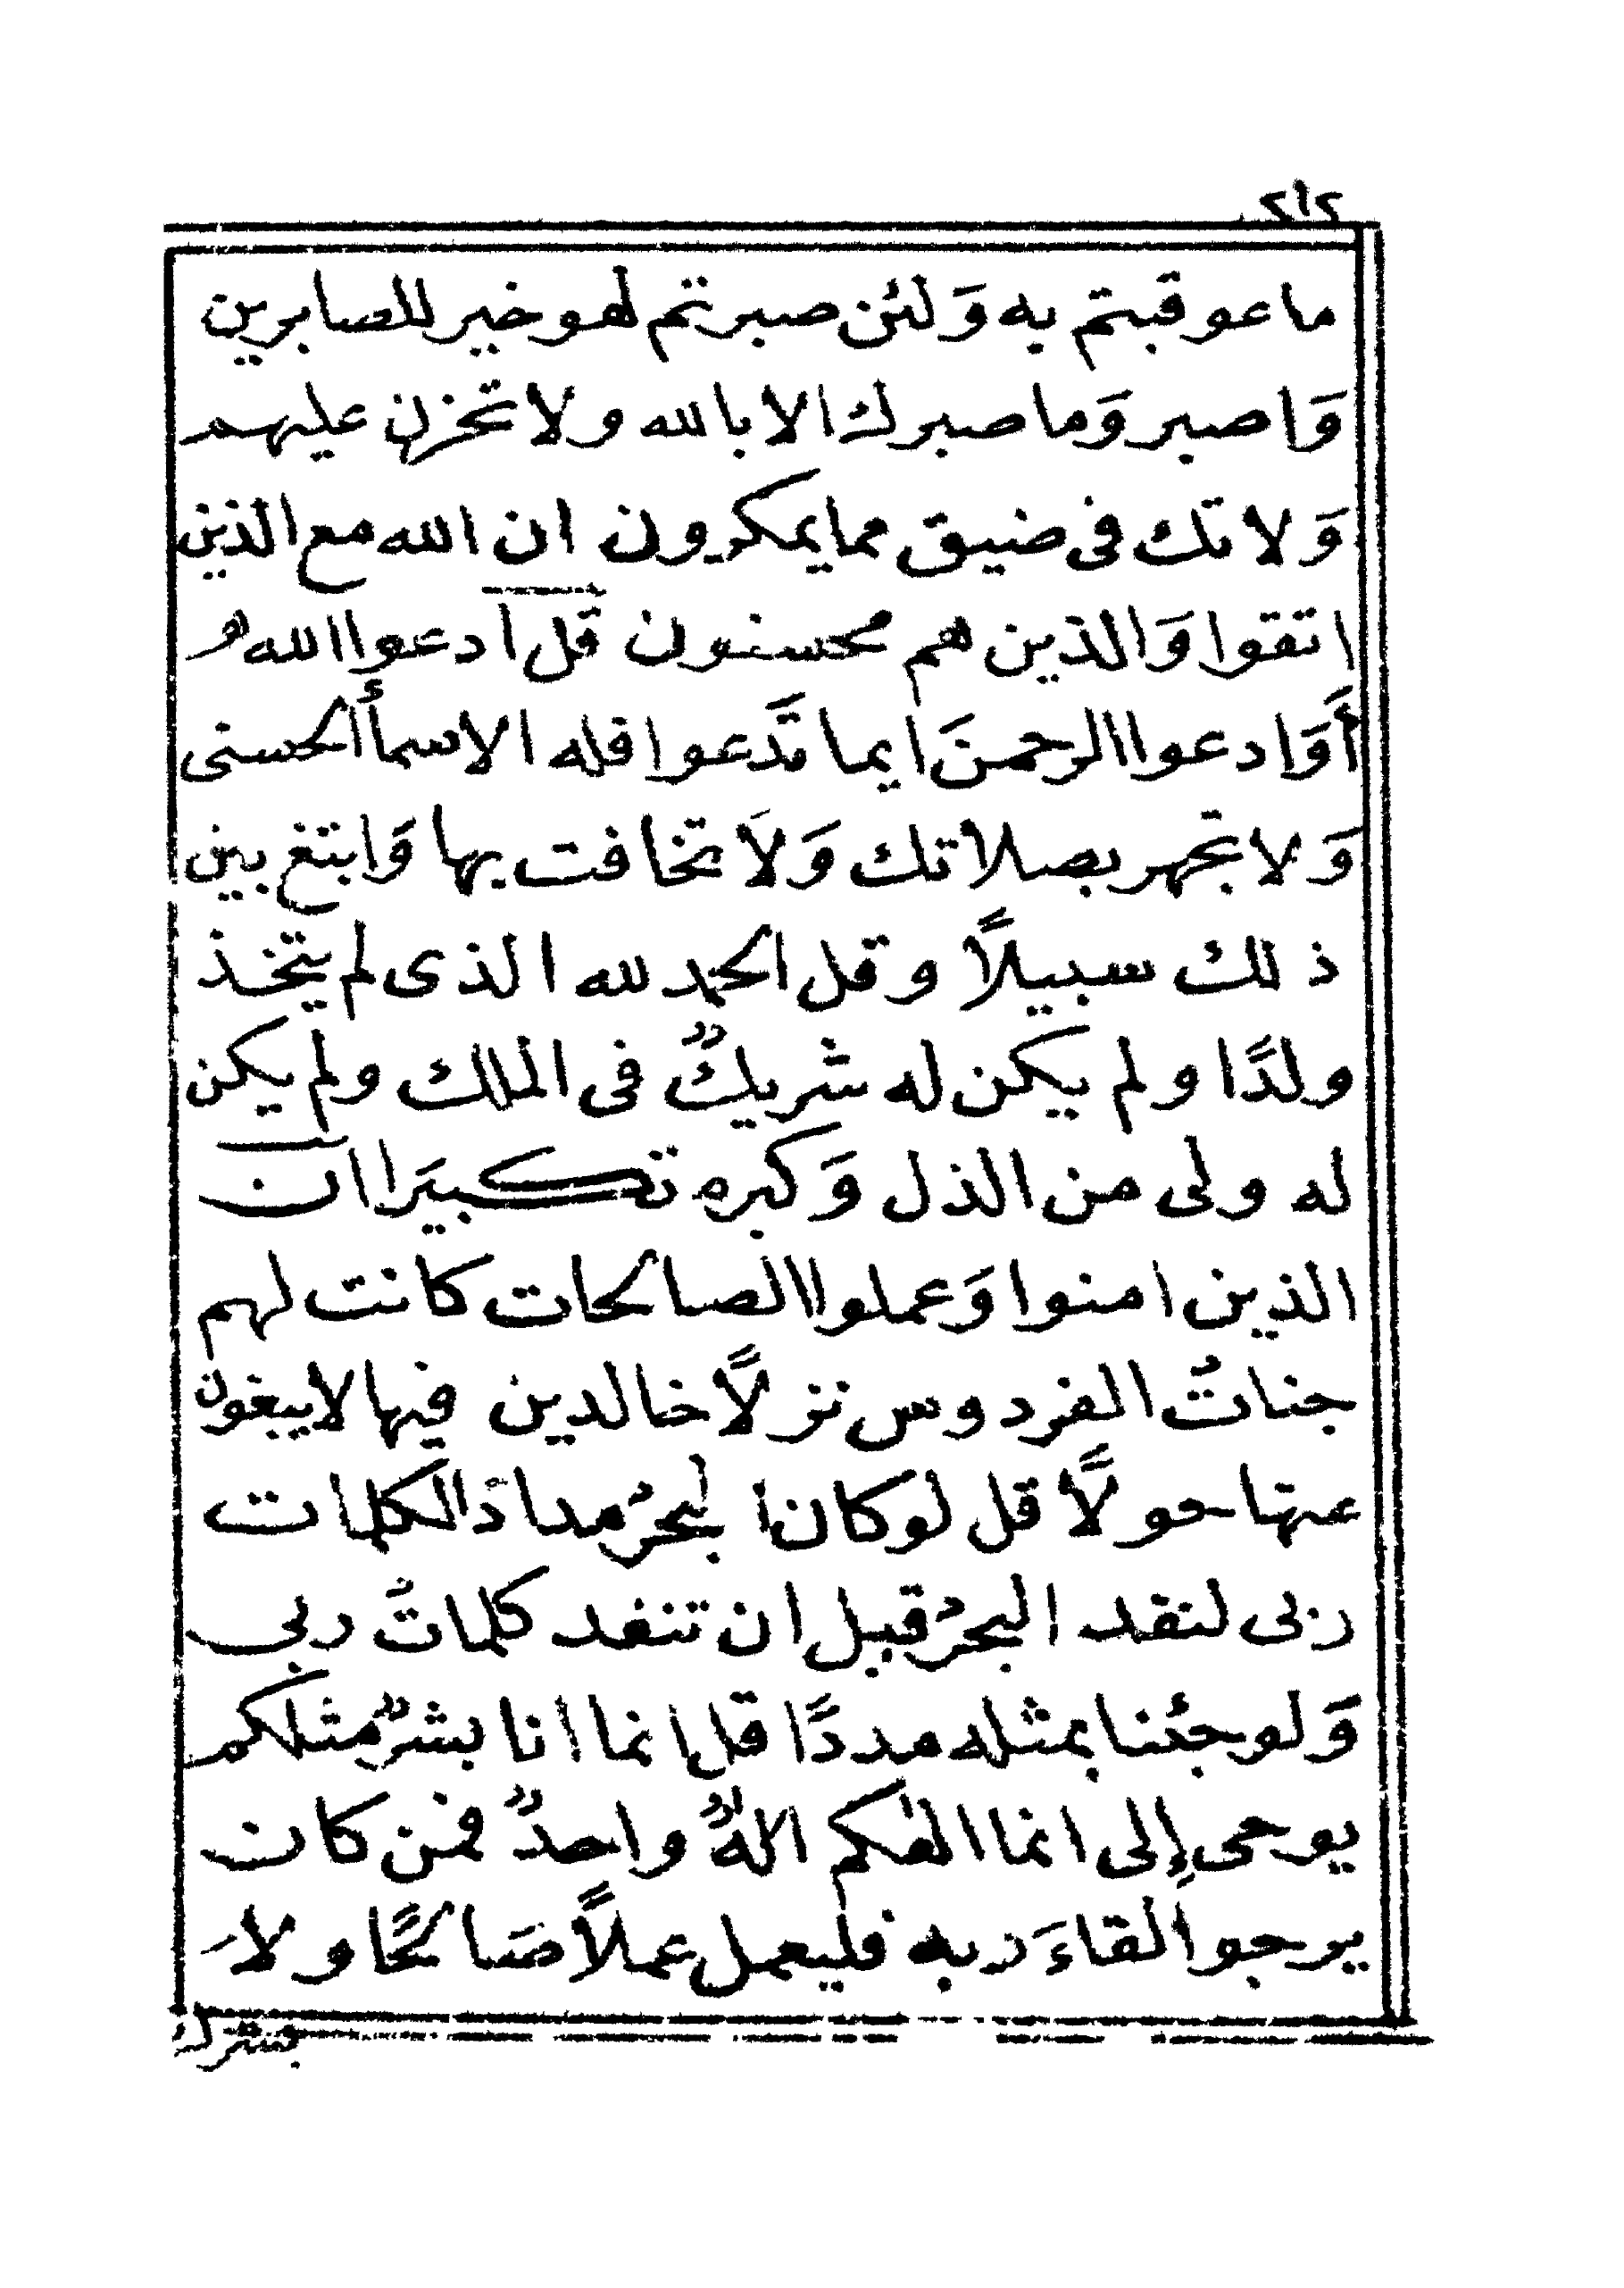 ٢١٢
ما عوقبتم به وَلئن صبرتم لهو خير للصابرين
وَاصبر وَما صبرك الا بالله ولا تحزن عليهم
وَلا تك فى ضيق مما يمكرون ان الله مع الذين
اتقوا وَالذين هم محسنون قل ادعوا الله
أَوَادعوا الرحمنَ ايما تَدعوا فله الاسمأ الحسنى
وَلا تجهر بصلاتك وَلَا تخافت بها وَابتغ بين
ذلك سبيلاً وقل الحمد لله الذى لم يتخذ
ولدًا ولم يكن له شريكٌ فى الملك ولم يكن
له ولى من الذل وَكبره تكبيرَا ان
الذين امنوا وَعملوا الصالحات كانت لهم
جناتُ الفردوس نزلاً خالدين فيها لا يبغون
عنها حولاً قل لو كان البحرُ مدادَا لكلمات
ربى لنفد البحرُ قبل ان تنفد كلماتُ ربى
وَلو جئنا بمثله مددًا قل انما انا بشرٌ مثلكم
يوحى إلى انما الهكم الهٌ واحدٌ فمن كان
يرجوا لقاءَ ربه فليعمل عملاً صَالحًا ولاَ
يشرك